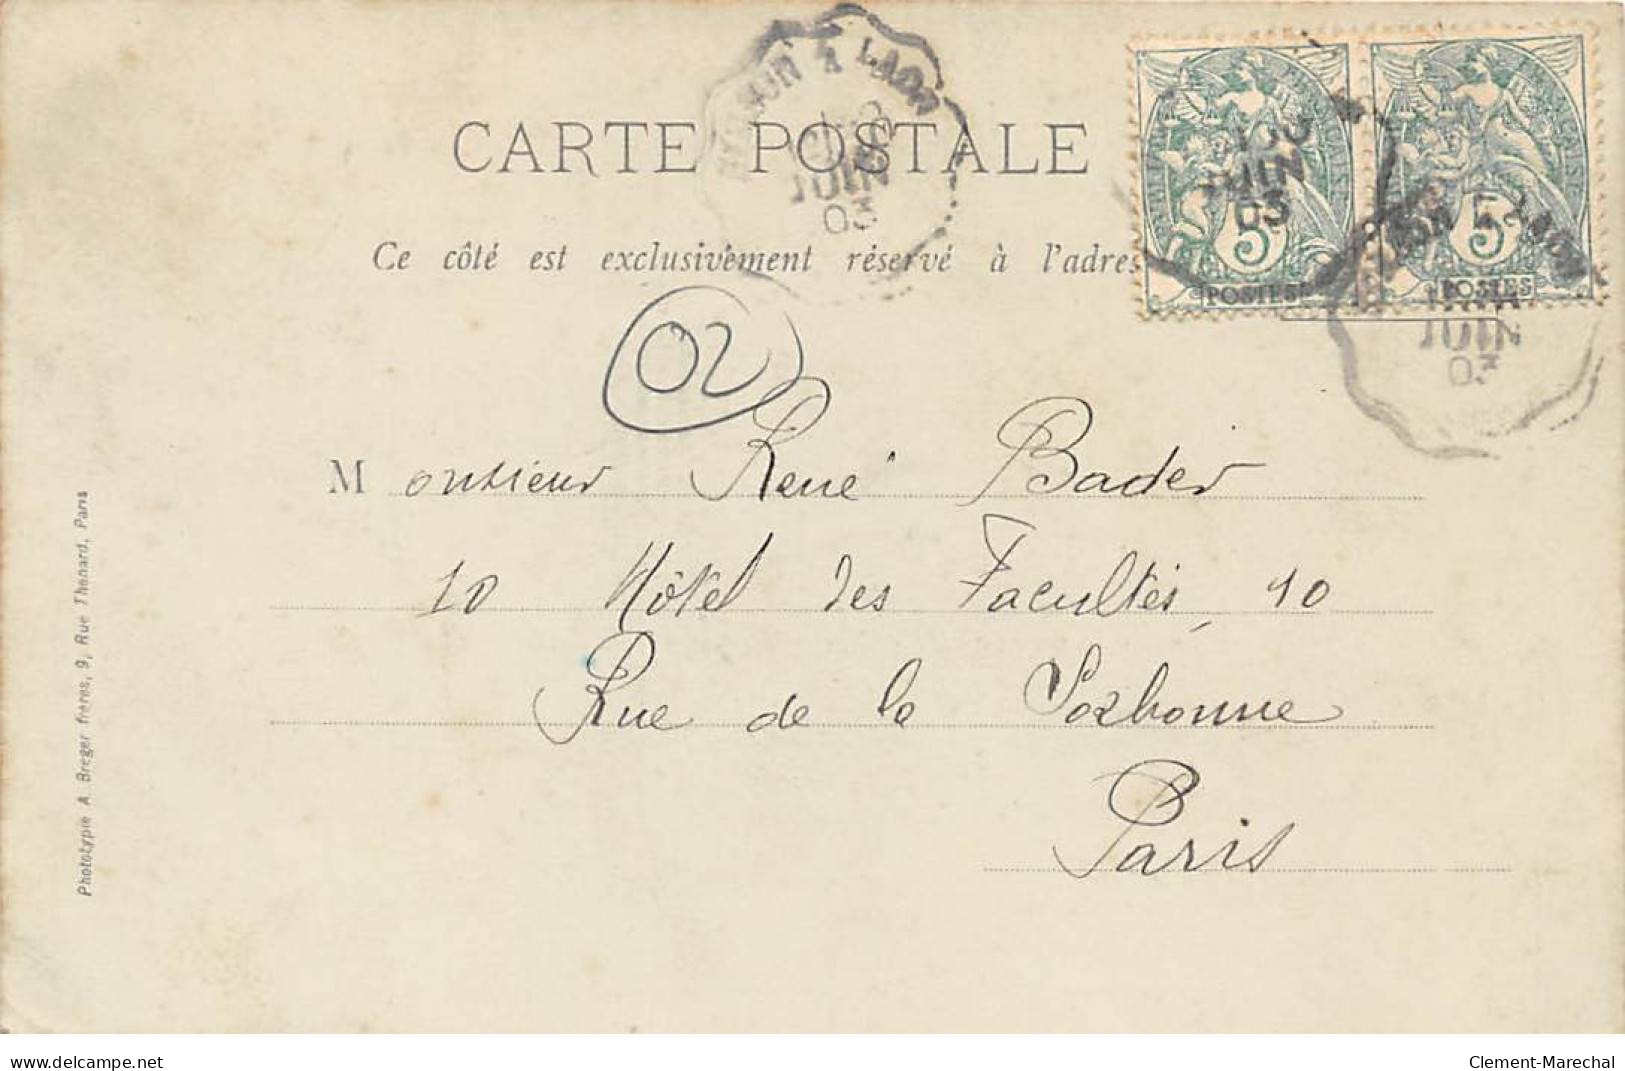 CARTE POSTALE
Ce côté est exclusivement réservé à l'adres
À LAON
JUIN
03
JUIN
03
5
POSTES
5
POSTES
JUIN
03
02
Monsieur René Bader
10 Hôtel des Facultés, 10
Rue de la Sorbonne
Paris
Phototypie A. Breger frères, 9, Rue Thenard, Paris
delcampe.net
Clement-Marechal